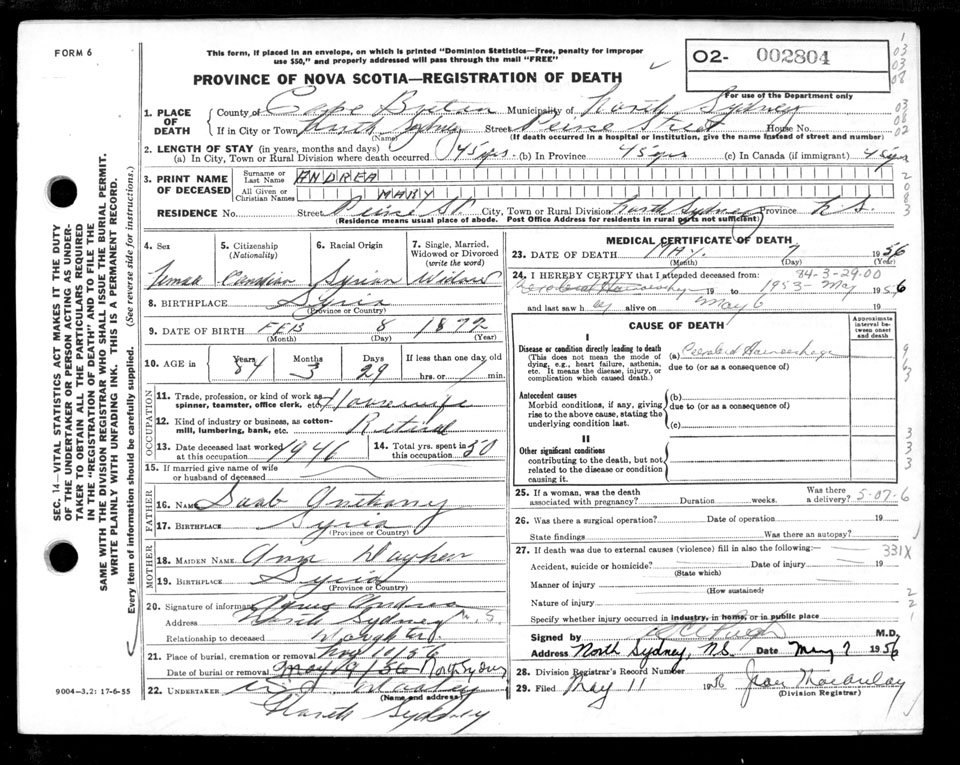 FORM 6
This form, if placed in an envelope, on which is printed "Dominion Statistics—Free, penalty for improper
use $50," and properly addressed will pass through the mail "FREE"
O2- 002804
For use of the Department only
PROVINCE OF NOVA SCOTIA—REGISTRATION OF DEATH
1. PLACE OF DEATH County of Cape Breton Municipality of North Sydney
If in City or Town North Sydney Street Street House No.
(Name) (If death occurred in a hospital or institution, give the name instead of street and number)
2. LENGTH OF STAY (in years, months and days)
(a) In City, Town or Rural Division where death occurred 45 yrs. (b) In Province 45 yrs (c) In Canada (if immigrant) 45 yrs
3. PRINT NAME OF DECEASED Surname or Last Name ANDREA
All Given or Christian Names MARY
RESIDENCE No. Street St. City, Town or Rural Division North Sydney Province N.S.
(Residence means usual place of abode. Post Office Address for residents in rural parts not sufficient)
4. Sex 5. Citizenship (Nationality) 6. Racial Origin 7. Single, Married, Widowed or Divorced (write the word)
Female Canadian Syrian Widow
8. BIRTHPLACE Syria
(Province or Country)
9. DATE OF BIRTH FEB 8 1872
(Month) (Day) (Year)
10. AGE in Years Months Days If less than one day old
84 3 29 hrs. or min.
OCCUPATION
11. Trade, profession, or kind of work as spinner, teamster, office clerk, etc. Housewife
12. Kind of industry or business, as cotton-mill, lumbering, bank, etc. Retired
13. Date deceased last worked at this occupation 1946 14. Total yrs. spent in this occupation 50
15. If married give name of wife or husband of deceased
FATHER
16. NAME Saab Anthony
17. BIRTHPLACE Syria
(Province or Country)
MOTHER
18. MAIDEN NAME
19. BIRTHPLACE Syria
(Province or Country)
20. Signature of informant Andrea
Address North Sydney N.S.
Relationship to deceased Daughter.
21. Place of burial, cremation or removal May 10/56
Date of burial or removal May 9/56 North Sydney
22. UNDERTAKER
(Name and address)
North Sydney
9004—3.2: 17-6-55
MEDICAL CERTIFICATE OF DEATH
23. DATE OF DEATH MAY. 7 1956
(Month) (Day) (Year)
84-3-29-00
24. I HEREBY CERTIFY that I attended deceased from:
19 to 1953 - May 1956
and last saw h er alive on May 6 19
CAUSE OF DEATH
Approximate interval between onset and death
I
Disease or condition directly leading to death
(This does not mean the mode of dying, e.g., heart failure, asthenia, etc. It means the disease, injury, or complication which caused death.)
(a) Cerebral Haemorrhage
due to (or as a consequence of)
Antecedent causes
Morbid conditions, if any, giving rise to the above cause, stating the underlying condition last.
(b)
due to (or as a consequence of)
(c)
II
Other significant conditions
contributing to the death, but not related to the disease or condition causing it.
25. If a woman, was the death associated with pregnancy? Duration weeks. Was there a delivery? 5-07-6
26. Was there a surgical operation? Date of operation 19
State findings Was there an autopsy?
27. If death was due to external causes (violence) fill in also the following:— 331X
Accident, suicide or homicide? Date of injury 19
(State which)
Manner of injury
(How sustained)
Nature of injury
Specify whether injury occurred in industry, in home, or in public place
Signed by M.D.
Address North Sydney, N.S. Date May 7 1956
28. Division Registrar's Record Number
29. Filed May 11 1956 Jean Macaulay
(Division Registrar)
SEC. 14—VITAL STATISTICS ACT MAKES IT THE DUTY
OF THE UNDERTAKER OR PERSON ACTING AS UNDER-
TAKER TO OBTAIN ALL THE PARTICULARS REQUIRED
IN THE "REGISTRATION OF DEATH" AND TO FILE THE
SAME WITH THE DIVISION REGISTRAR WHO SHALL ISSUE THE BURIAL PERMIT.
WRITE PLAINLY WITH UNFADING INK. THIS IS A PERMANENT RECORD.
Every item of information should be carefully supplied. (See reverse side for instructions.)